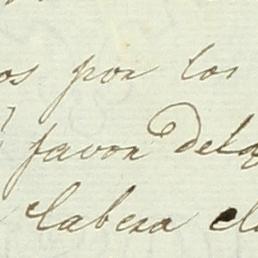 os por los
favor dela
Cabeza el